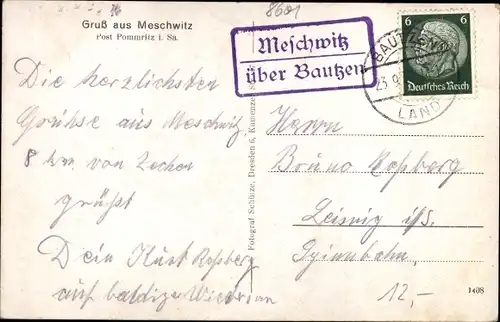 8601
Gruß aus Meschwitz
Post Pommritz i. Sa.
Meschwitz
über Bautzen
6 6
Deutsches Reich
BAUTZEN
23.9
LAND
Die herzlichsten
Grühse aus Meschwitz
8 km von
grühst
Dein Kurt Roßberg
auf baldiges
Fotograf Schütze, Dresden 6, Kamenzer
Herrn
Bruno Roßberg
Leisnig i/S.
12,-
1408